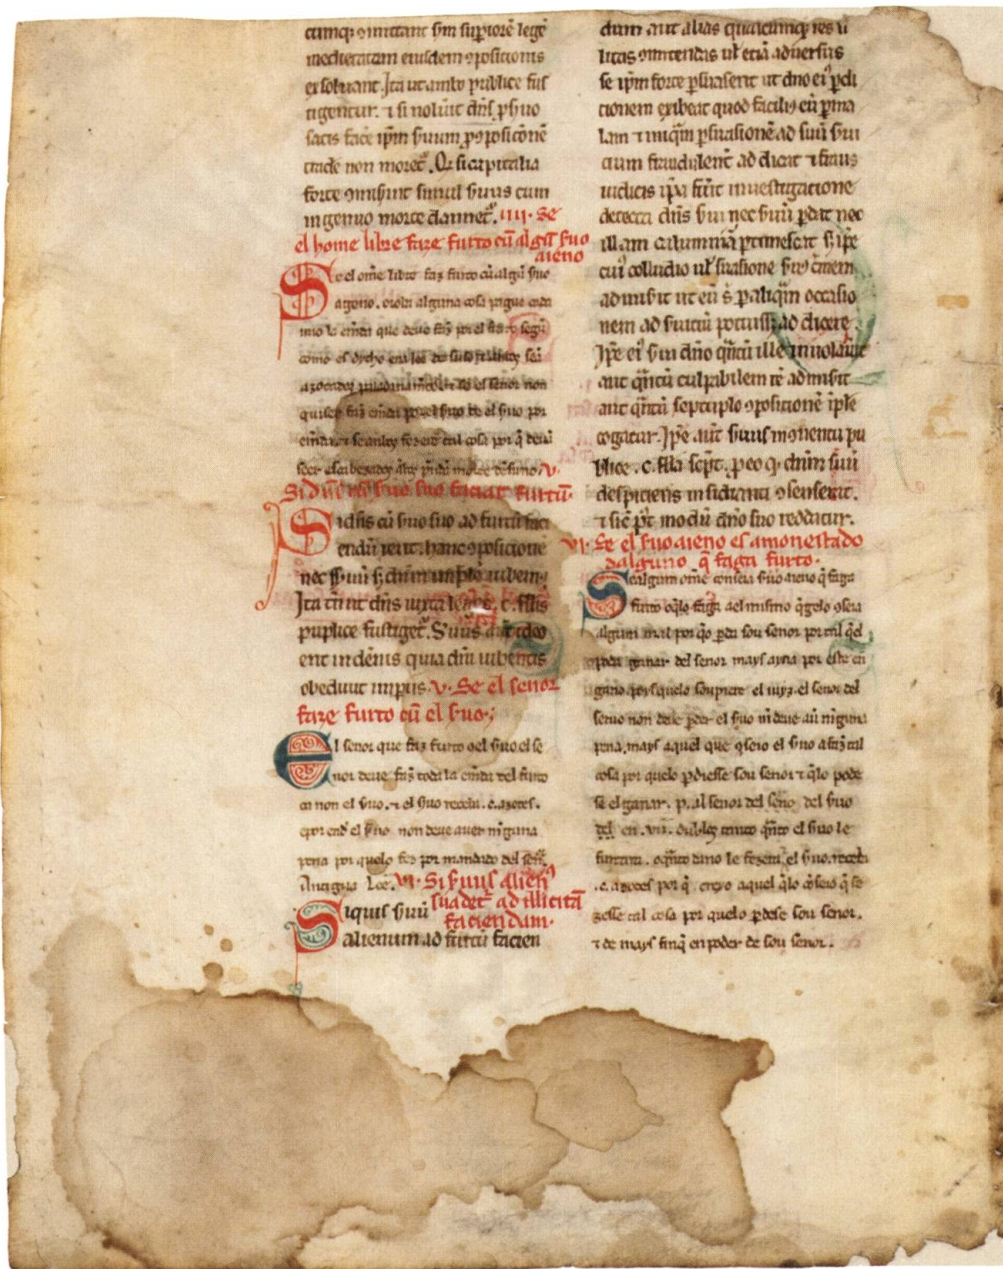 cumq; ꝯmittant ẜm suꝑiorē legē
medietatem eiusdem ꝯposicionis
exsoluant. Ita ut ambo publice fus
tigentur. ⁊ si noluit dn̄s ꝑ ẜuo
face ip̄m ẜuum
morte Qr̄ si capitalia
forte ꝯmiserint simul ẜuus cum
ingenuo morte dannet᷑. IIII. Se
el home libre faze furto cū algū ẜuo
aieno
Se el ome libre faz furto cū algū ẜuo
ageno. o roba alguna cosa pague cada
uno la emēda que deue faz̄ por el furto segū
como es dicho ena lee de suso
el senor non
quiser faz̄ emēda por el ẜuo de el ẜuo por
emēda. ⁊ se anbos fezerē tal cosa por q̄ deuā
seer escabezados V.
Si dn̄e cū ẜuo suo faciat furtū.
Si dn̄s cū ẜuo suo ad furtū faci
endū hanc ꝯposicione
nec ẜuū s; dn̄m implē iubem;
Ita tn̄ ut dn̄s iuxta leges. c. fllis
puplice fustiget᷑. ẜuus aūt ideo
erit indēnis quia dn̄i iubentis
obediuit V. Se el senor
faze furto cū el ẜuo;
El senor que faz furto ꝯel ẜuo el se
nor deue faz̄ toda la emēda del furto
ca non el ẜuo. ⁊ el ẜuo reciba .c. azotes.
e por end el ẜuo non deue auer ninguna
pena por quelo fez por mandado del señ.
Antigua Lee. VI. Si ẜuus alien᷒
suadet᷑ ad illicitā
faciendam.
Siquis ẜuū
alienum ad furtū facien
dum aut alias quascumq; res il
licitas ꝯmitendas uł etiā aduersus
se ip̄m forte ꝑsuaserit ut dn̄o ei᷒ ꝑdi
cionem exibeat quod facili᷒ eū ꝑ ma
lam ⁊ iniq̄m ꝑsuasionē ad suū ẜui
cium fraudulent᷑ ad dicat ⁊ fraus
iudicis ip̄a fūit inuestigatione
detecta dn̄s ẜui nec ẜuū ꝑdat nec
illam calumniā ꝑtimescat s; ip̄e
cui᷒ colludio uł suasione ẜu᷒ c̄men
admisit ut eū s; ꝑ aliq̄m occasio
nem ad ẜuiciū potuisset ad dicere
Ip̄e ei᷒ ẜui dn̄o q̄ntū ille inuolauit
aut q̄ntū culpabilem se admisit
aut q̄ntū septuplo ꝯposicionē iple
cogatur. Ip̄e aūt ẜuus in ꝯuentu pu
blice .c. flla
despiciens insidianti ꝯsenserit.
⁊ modū dn̄o suo reddatur.
VI. Se el ẜuo aieno es amonestado
dalguno q̄ faga furto.
Se algum ome conseia ẜuo aieno q̄ faga
furto o q̄lo faga a el mismo q̄ gelo ꝯseia
algum mal por q̄o ꝑda sou senor por tal q̄el
poda ganar del senor mays ayna por este en
gano. poys quelo soupiere el iuyz. el senor del
seruo non deue ꝑder el ẜuo ni deue auer ninguna
pena. mays aquel que ꝯseio el ẜuo a faz̄ tal
cosa por quelo ꝑdiesse sou senor ⁊ q̄lo pode
se el ganar. p. al senor del ẜuo
.VII. dublos tanto q̄nto el ẜuo le
furtara. o q̄nto dano le fezera. el ẜuo. reciba
.c. azotes por q̄ creyo aquel q̄lo ꝯseio q̄ fe
zesse tal cosa por quelo ꝑdese sou senor.
⁊ de mays finq̄ en poder de sou senor.